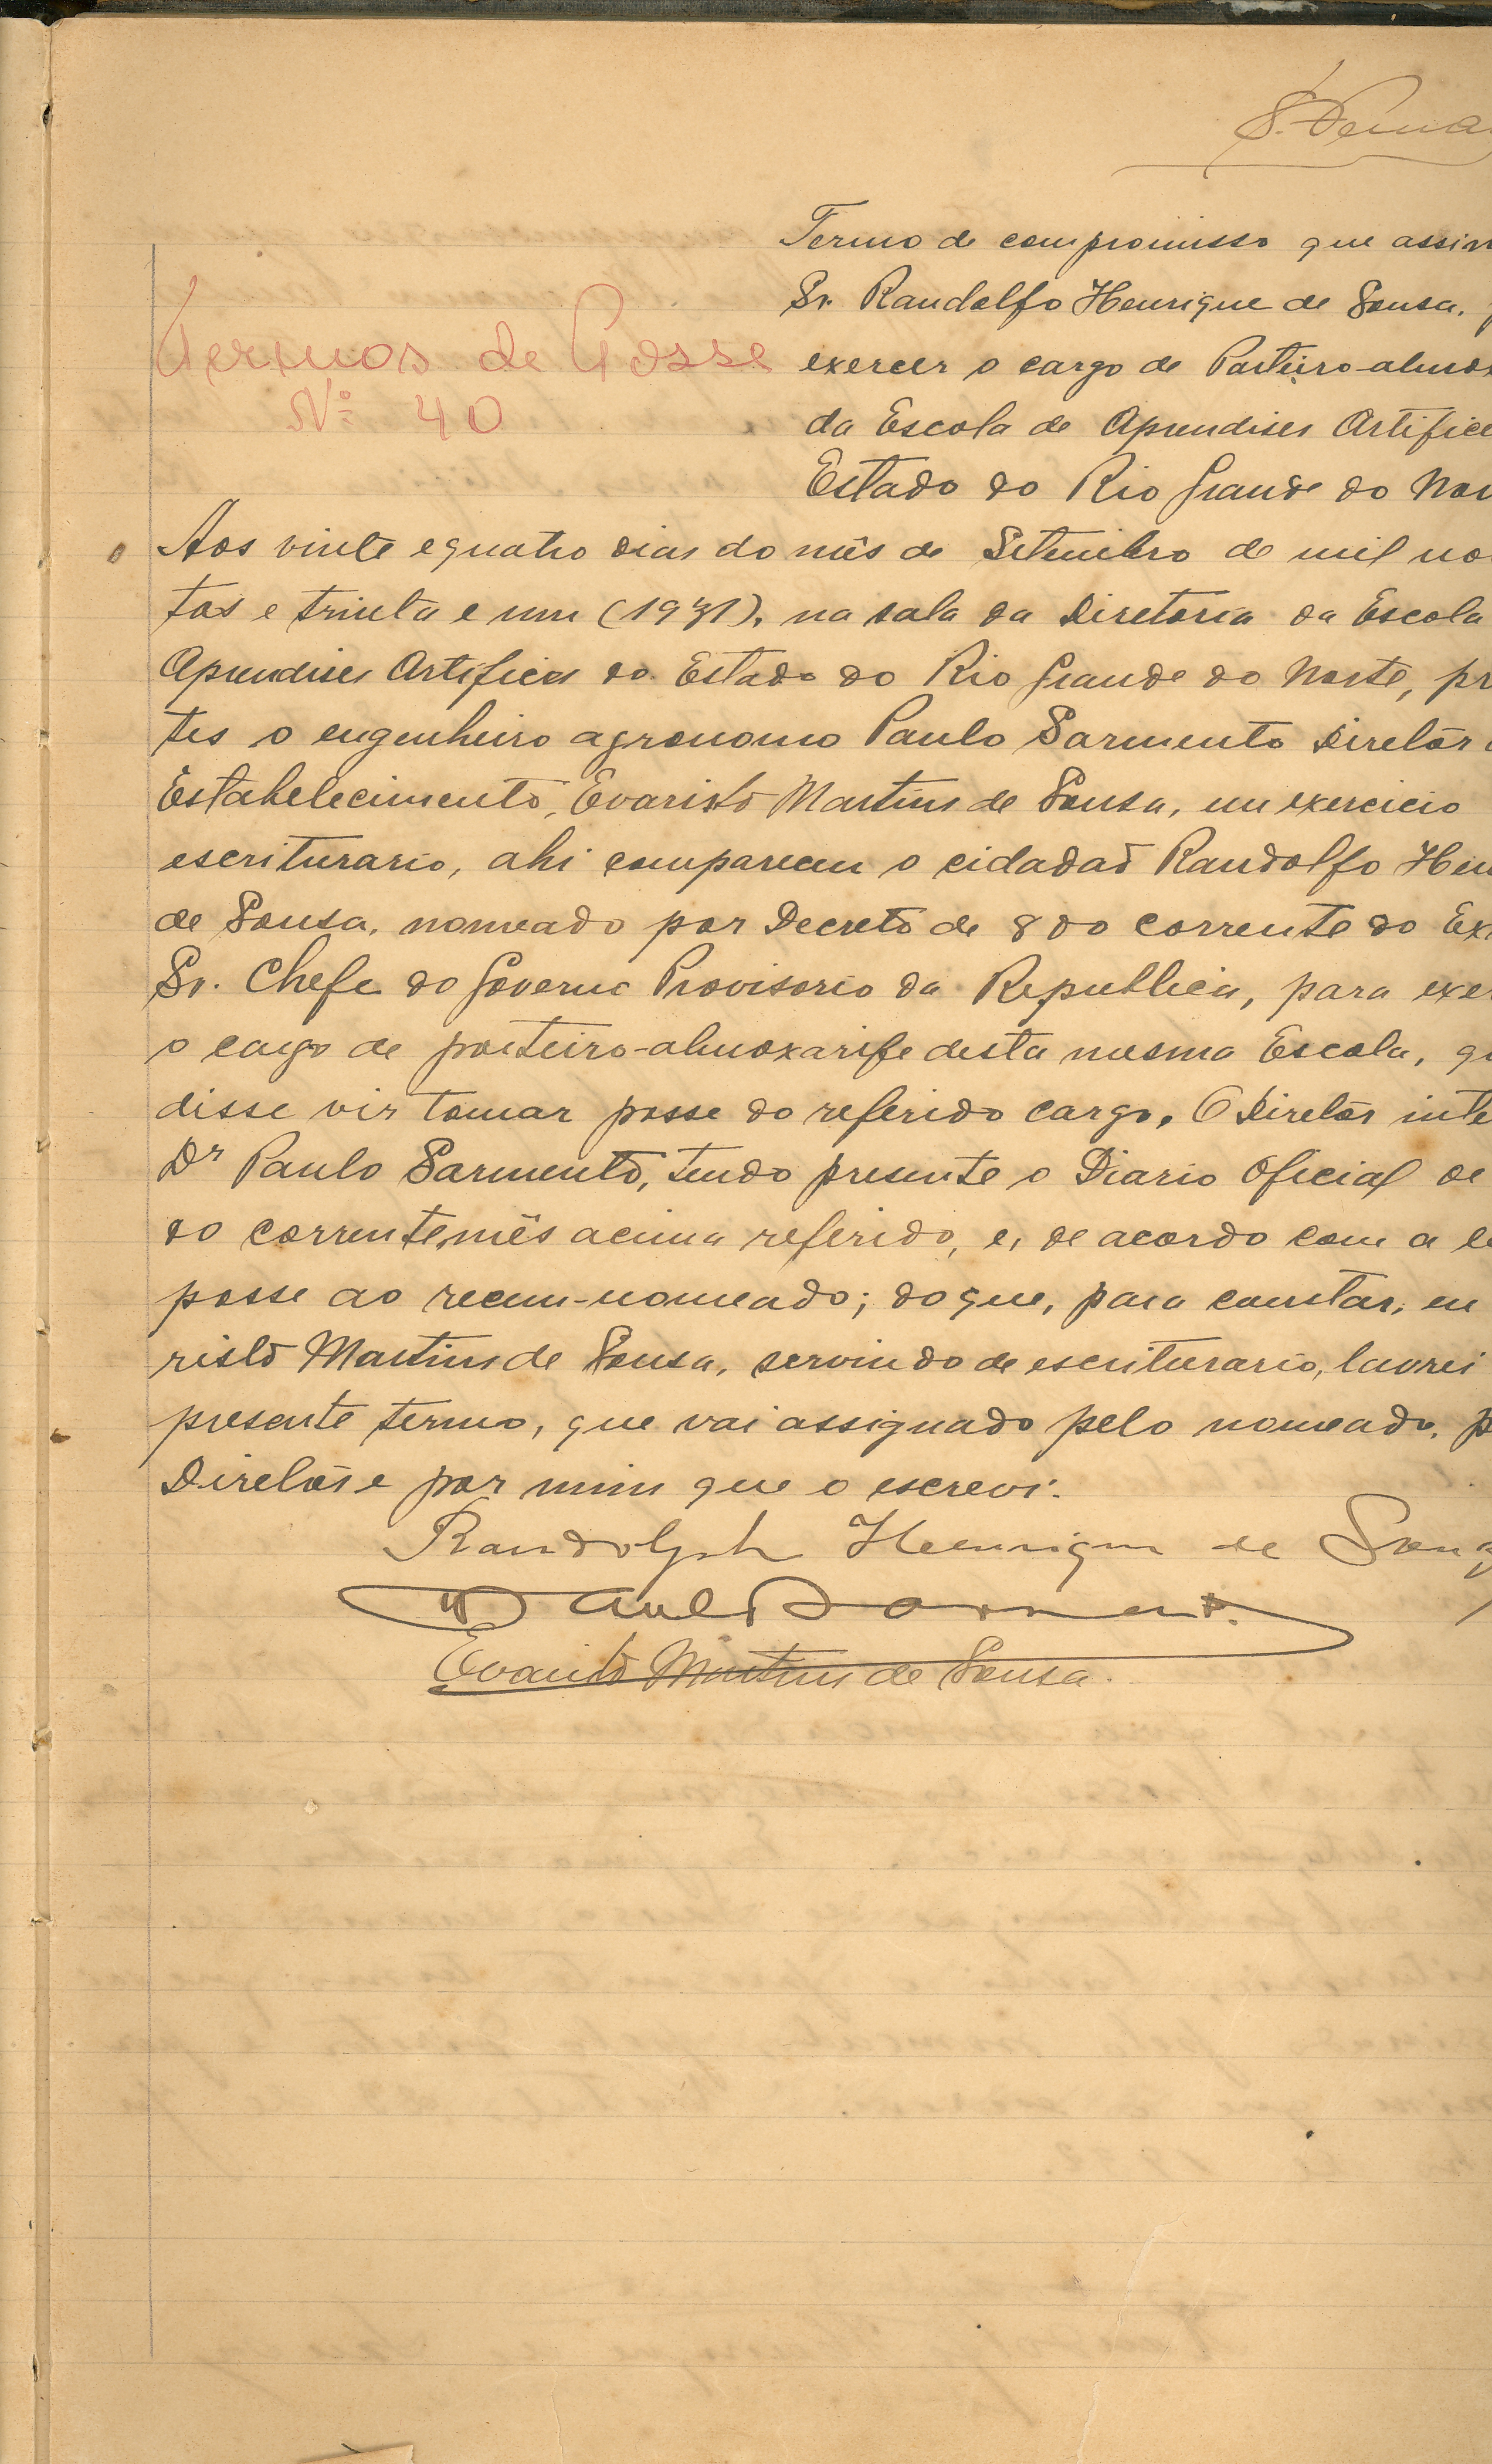 Termo de compromisso que assin
Sr. Randolfo Henrique de Sousa,
Termos de Posse
exercer o cargo de Porteiro-almox
Nº 40
da Escola de Aprendises Artifice
Estado do Rio Grande do Nor
Aos vinte e quatro dias do mês de Setembro de mil no
tos e trinta e um (1931), na sala da Diretoria da Escola
Aprendises Artifices do Estado do Rio Grande do Norte, pr
tes o engenheiro agronomo Paulo Sarmento Diretôr
Estabelecimento, Evaristo Martins de Sousa, em exercicio
escriturario, ahi compareceu o cidadaõ Randolfo Hen
de Sousa, nomeado por Decreto de 8 do corrente do Ex
Sr. Chefe do Governo Provisorio da Republica, para exer
o cargo de porteiro-almoxarife desta mesma Escola, q
disse vir tomar posse do referido cargo. O Diretôr inte
Dr Paulo Sarmento, tendo presente o Diario Oficial de
do corrente mês acima referido, e, de acordo com a le
posse ao recem-nomeado; do que, para constar, eu
risto Martins de Sousa, servindo de escriturario, lavrei
presente termo, que vai assignado pelo nomeado, p
Diretôr e por mim que o escrevi.
Randolph Henrique de Souz
Paulo Sarmento.
Evaristo Martins de Sousa.